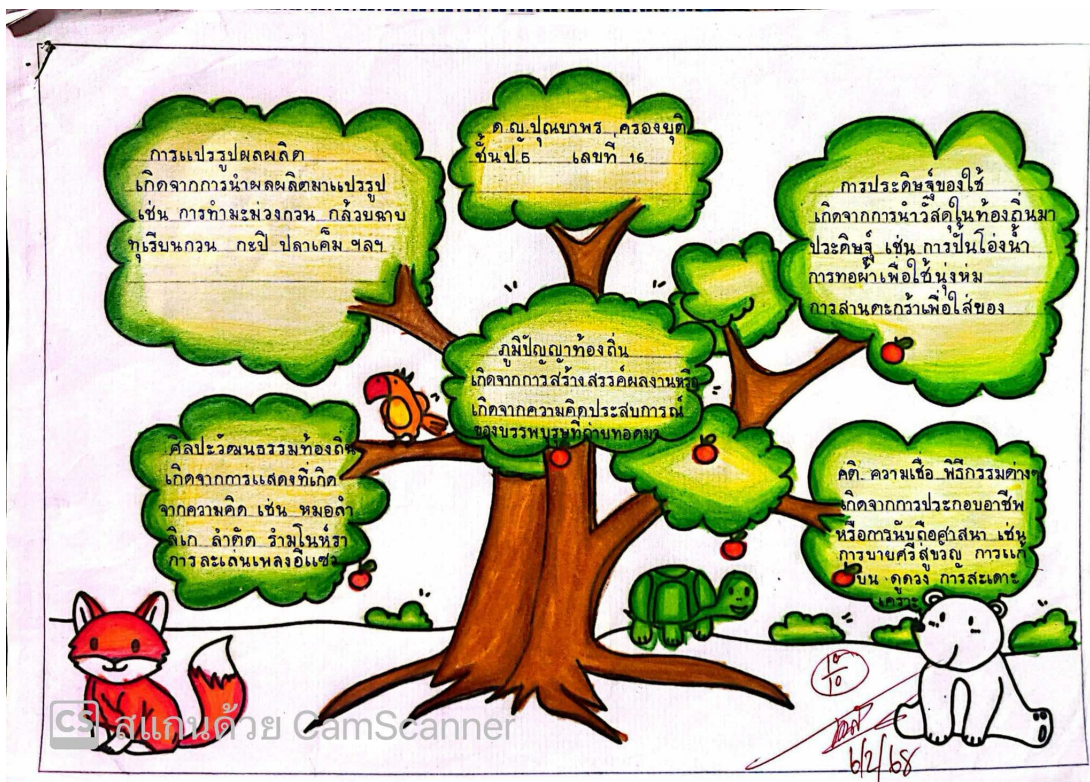 ด.ญ.ปุณยาพร ครองยุติ
ชั้นป.5 เลขที่ 16
การแปรรูปผลผลิต
เกิดจากการนำผลผลิตมาแปรรูป
เช่น การทำมะม่วงกวน กล้วยฉาบ
ทุเรียนกวน กะปิ ปลาเค็ม ฯลฯ
การประดิษฐ์ของใช้
เกิดจากการนำวัสดุในท้องถิ่นมา
ประดิษฐ์ เช่น การปั้นโอ่งน้ำ
การทอผ้าเพื่อใช้นุ่งห่ม
การสานตะกร้าเพื่อใส่ของ
ภูมิปัญญาท้องถิ่น
เกิดจากการสร้างสรรค์ผลงานหรือ
เกิดจากความคิดประสบการณ์
ของบรรพบุรุษที่ถ่ายทอดมา
ศิลปะวัฒนธรรมท้องถิ่น
เกิดจากการแสดงที่เกิด
จากความคิด เช่น หมอลำ
ลิเก ลำตัด รำมโนห์รา
การละเล่นเพลงอีแซว
คติ ความเชื่อ พิธีกรรมต่างๆ
เกิดจากการประกอบอาชีพ
หรือการนับถือศาสนา เช่น
การบายศรีสู่ขวัญ การแก้
บน ดูดวง การสะเดาะ
เคราะ
10
10
6/2/68
CS สแกนด้วย CamScanner